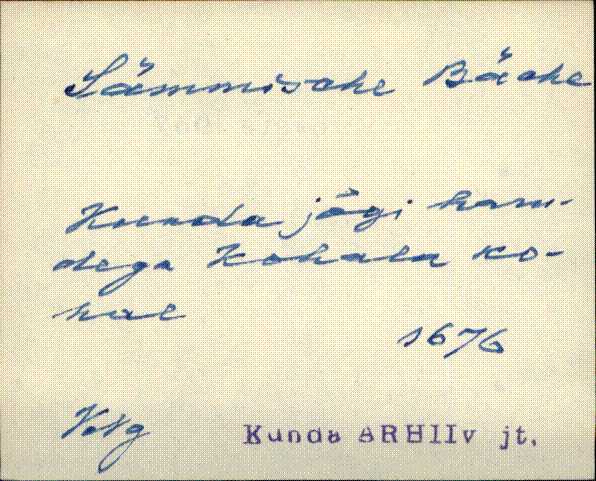 Sämmische Bäche
Kunda jõgi haru-
dega Kohala ko-
hal
1676
VNg
Kunda ARHIIv jt.